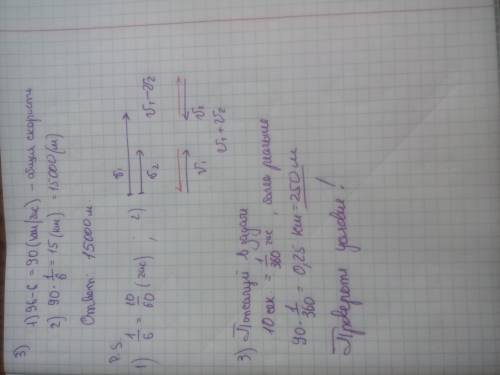 3) 1) 96-6 = 90 (км/час) - общая скорость
2) 90 · 1/6 = 15 (км) = 15000 (м)
Ответ: 15000 м
P.S.
1) 1/6 = 10/60 (час) ; 2) v₁ v₂ v₁-v₂
v₁ v₁
v₁+v₂
3) в задаче
10 сек = 1/360 час, более реальные
90 · 1/360 = 0,25 км = 250 м
Проверьте условие!